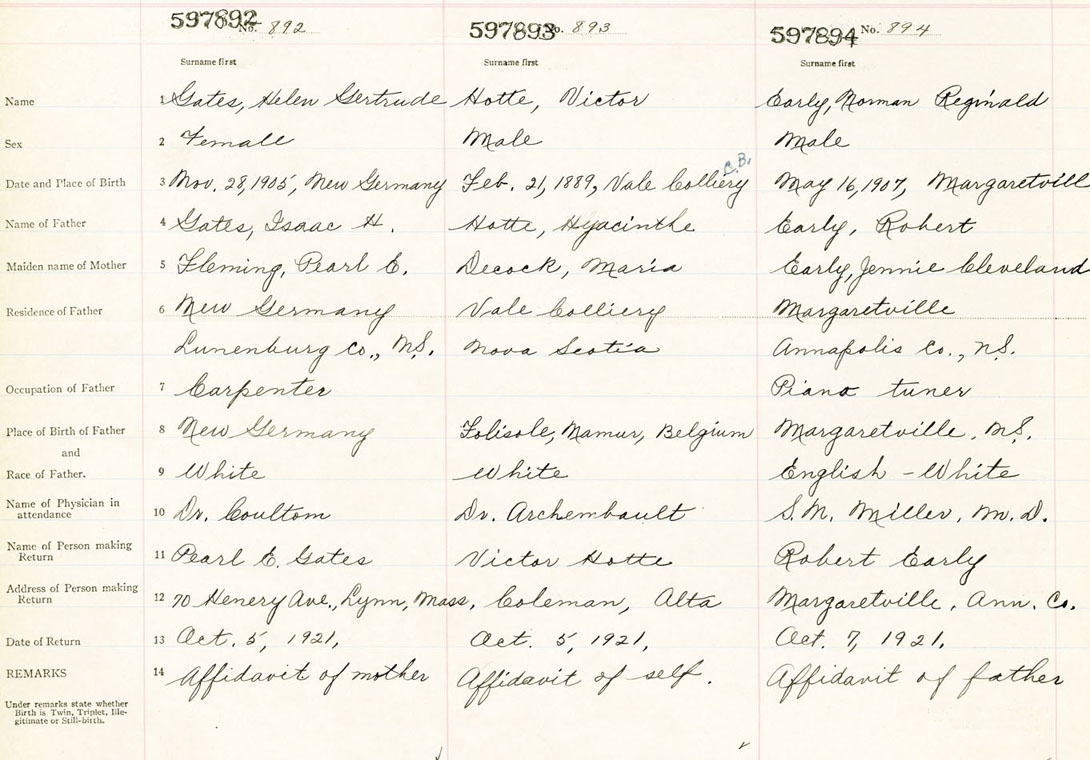 597892 No. 892 597893 No. 893 597894 No. 894
Surname first Surname first Surname first
Name 1 Gates, Helen Gertrude Hotte, Victor Early, Norman Reginald
Sex 2 Female Male Male
C.B.
Date and Place of Birth 3 Nov. 28, 1905, New Germany Feb. 21, 1889, Vale Colliery May 16, 1907, Margaretvill
Name of Father 4 Gates, Isaac H. Hotte, Hyacinthe Early, Robert
Maiden name of Mother 5 Fleming, Pearl E. Decock, Maria Early, Jennie Cleveland
Residence of Father 6 New Germany Vale Colliery Margaretville
Lunenburg Co., N.S. Nova Scotia Annapolis Co., N.S.
Occupation of Father 7 Carpenter Piano tuner
Place of Birth of Father 8 New Germany Folisole, Namur, Belgium Margaretville, N.S.
and
Race of Father. 9 White White English - White
Name of Physician in
attendance 10 Dr. Coultom Dr. Archembault S.N. Miller, M.D.
Name of Person making
Return 11 Pearl E. Gates Victor Hotte Robert Early
Address of Person making
Return 12 70 Henery Ave., Lynn, Mass, Coleman, Alta Margaretville, Ann. Co.
Date of Return 13 Oct. 5, 1921, Oct. 5, 1921, Oct. 7, 1921,
REMARKS 14 Affidavit of mother Affidavit of self. Affidavit of father
Under remarks state whether
Birth is Twin, Triplet, Ille-
gitimate or Still-birth.